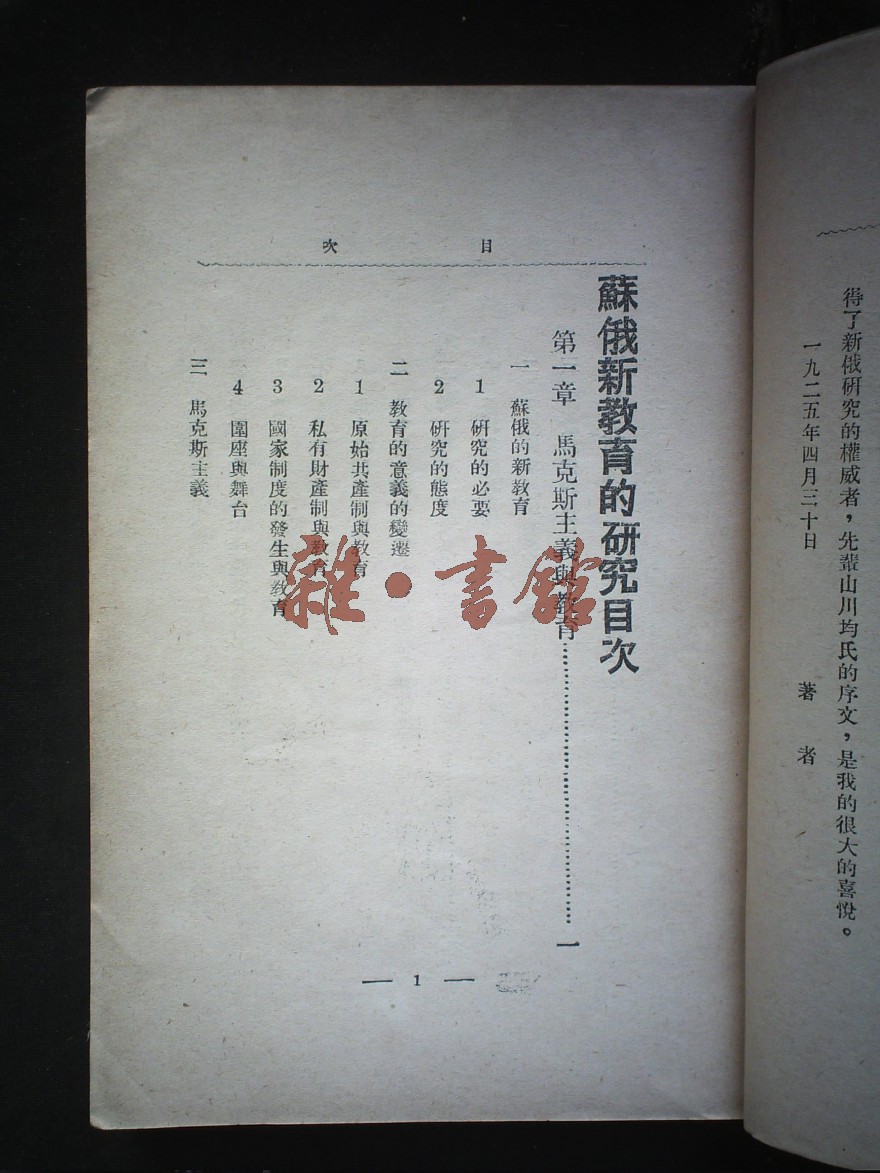 得了新俄研究的權威者，先輩山川均氏的序文，是我的很大的喜悅。
一九二五年四月三十日
著者
目次
蘇俄新教育的研究目次
第一章　馬克斯主義與教育……………………一
一　蘇俄的新教育
1　研究的必要
2　研究的態度
二　教育的意義的變遷
1　原始共產制與教育
2　私有財產制與教育
3　國家制度的發生與教育
4　圍座與舞台
三　馬克斯主義
— 1 —
雜·書館